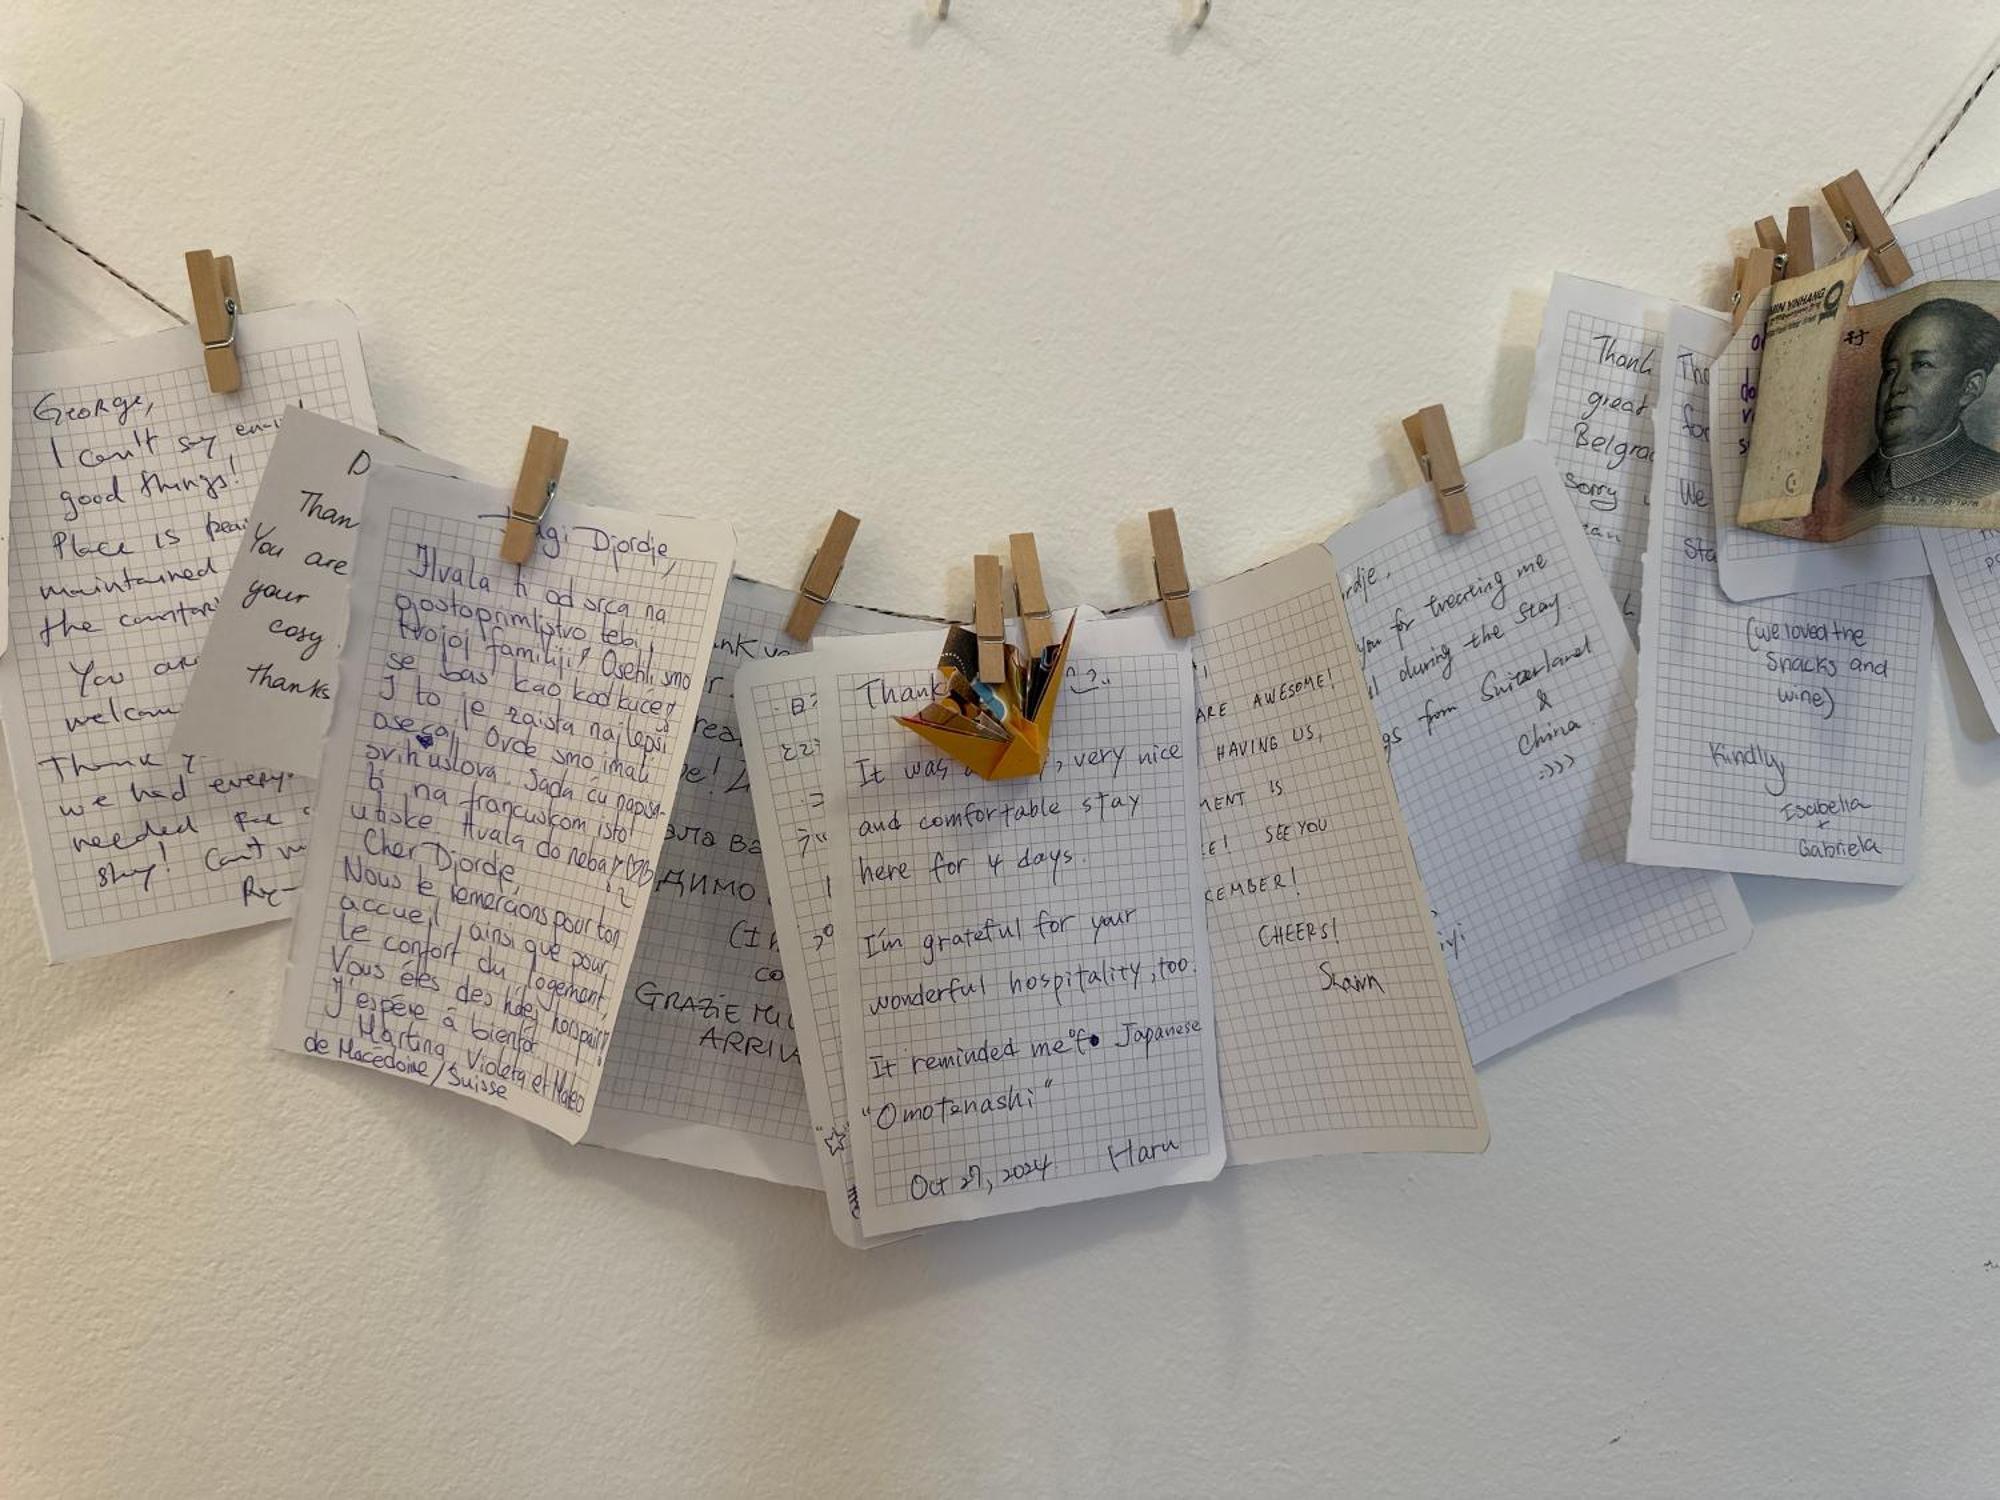 George,
I can't say
good things!
Place is
maintained
the
You are
welcom
Thank
we had every
needed for
stay! Can't
D
Than
You are
your
cosy
Thanks
Dragi Djordje,
Hvala ti od srca na
gostoprimljstvo tebi,
tvojoj familiji! Osehli smo
se baš kao kod kuće!
I to je zaista najlepši
osećaj. Ovde smo imali
svih uslova. Sada ću napisa-
ti na francuskom isto
utiske. Hvala do neba
Cher Djordje,
Nous te remercions pour ton
accueil, ainsi que pour
le confort du logement,
Vous êtes des hôtes hors pair!
J'espère à bientôt
Martina, Violeta et Mateo
de Macédoine/Suisse
ank yo
rea
e!
ала ва
димо
(I
co
GRAZIE MIL
ARRIV
日
Thank
It was a , very nice
and comfortable stay
here for 4 days.
I'm grateful for your
wonderful hospitality, too.
It reminded me of Japanese
"Omotenashi"
Oct 27, 2024 Haru
ARE AWESOME!
HAVING US,
MENT IS
E! SEE YOU
CEMBER!
CHEERS!
Shawn
rdje,
you for treating me
l during the stay.
gs from Suiterland
&
China
:)))
Thank
great
Belgrad
Sorry
can
Tha
for
We
Sta
(we loved the
snacks and
wine)
Kindly
Isabella
+
Gabriela
MIN YINHANG